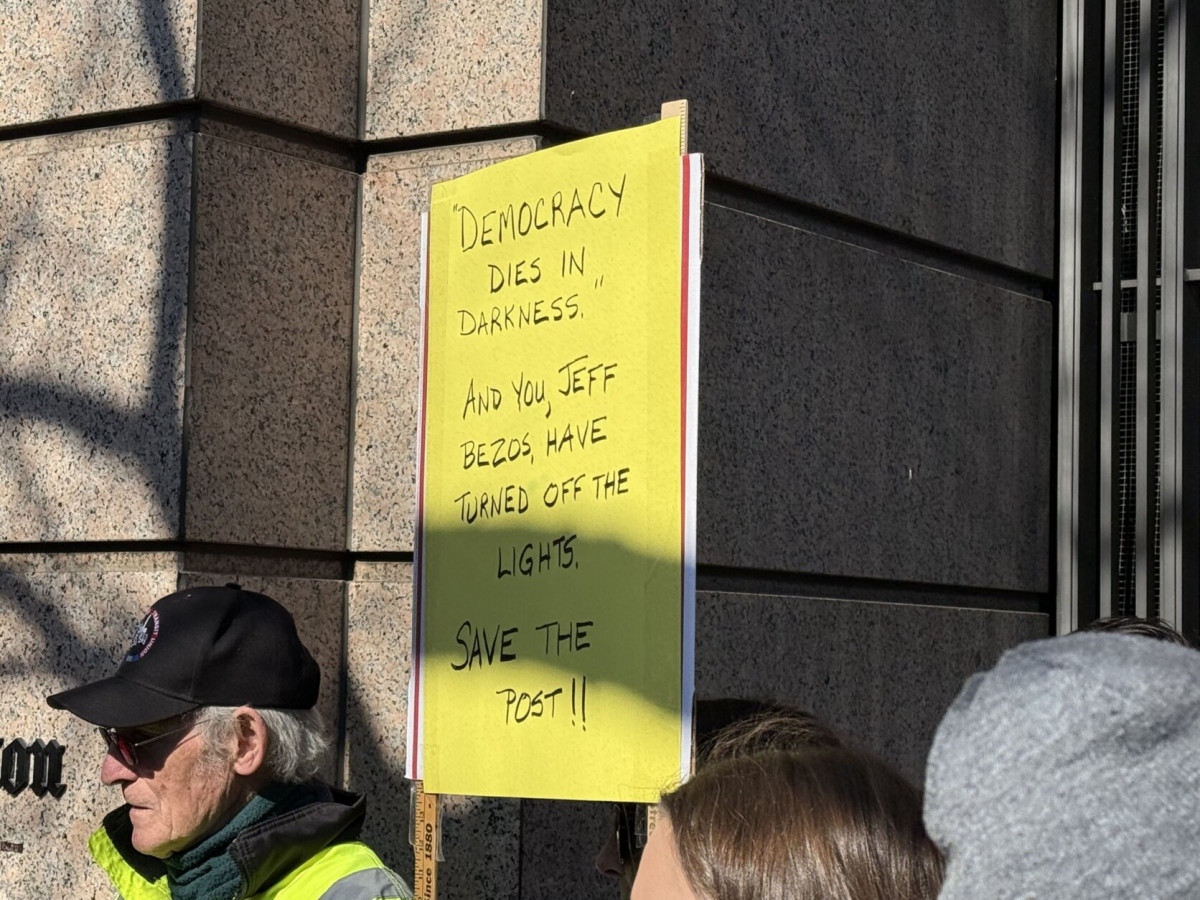 "DEMOCRACY
DIES IN
DARKNESS."
AND YOU, JEFF
BEZOS, HAVE
TURNED OFF THE
LIGHTS.
SAVE THE
POST!!
TRANSIT UNION
ince 1880